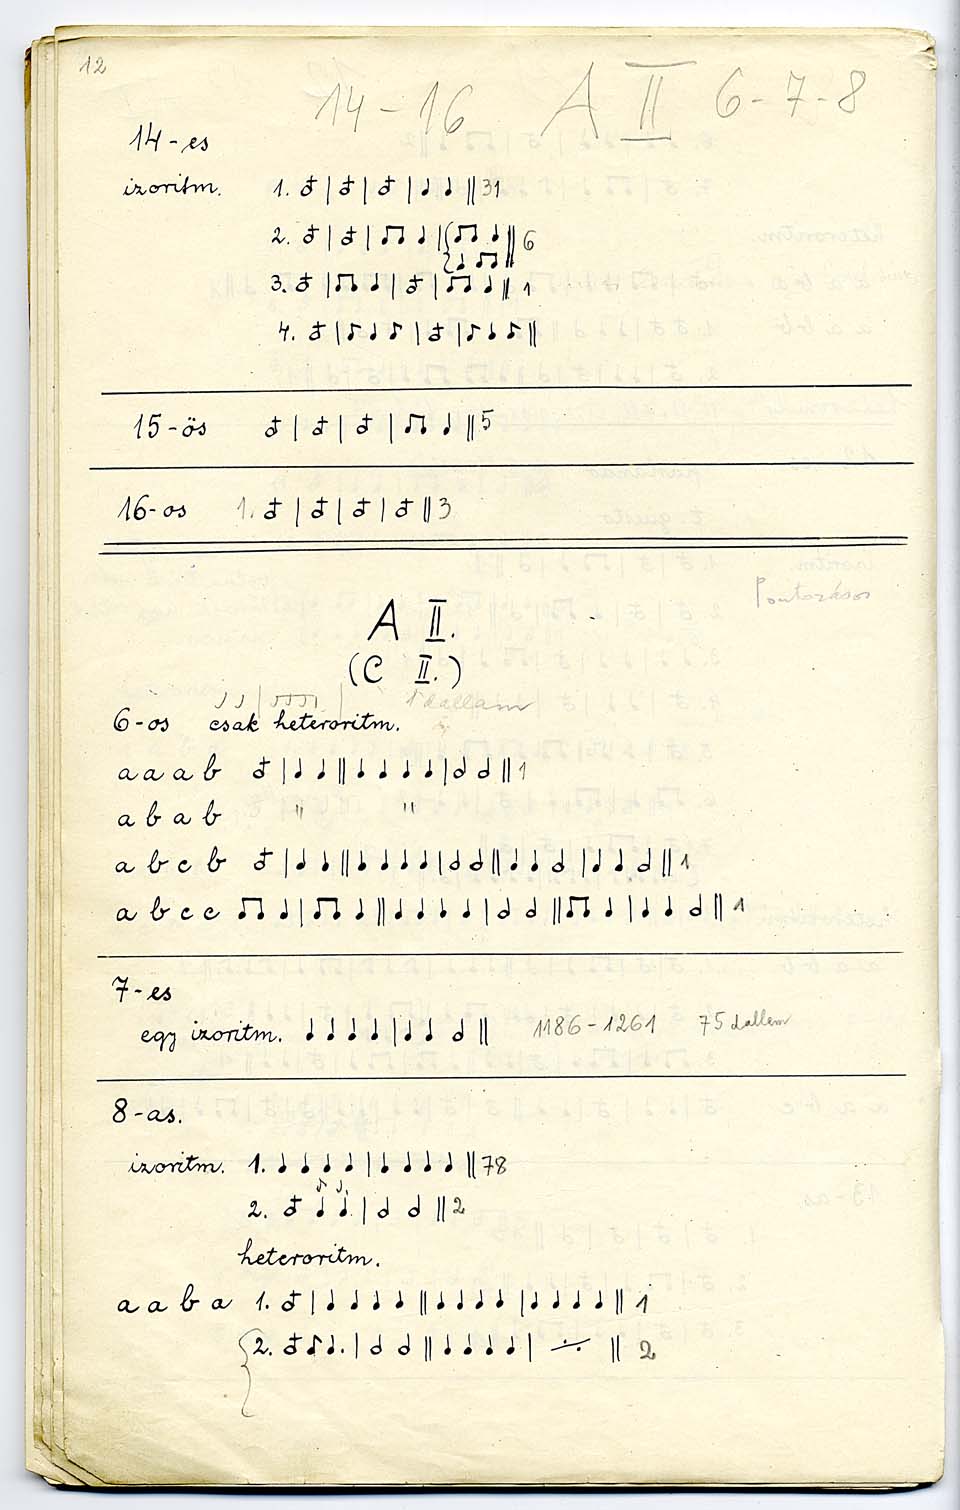 12
14-16 A II 6-7-8
14-es
izoritm. 1. | | | ‖ 31
2. | | | ‖ 6
3. | | | ‖ 1
4. | | | ‖
15-ös | | | ‖ 5
16-os 1. | | | ‖ 3
Pontozásos
A II.
(C II.)
1 dallam
6-os csak heteroritm.
a a a b | ‖ | ‖ 1
a b a b " "
a b c b | ‖ | ‖ | ‖ 1
a b c c | ‖ | ‖ | ‖ 1
7-es
egy izoritm. ♩ ♩ ♩ ♩ | ♩ ♩ 𝅗𝅥 ‖ 1186-1261 75 dallam
8-as.
izoritm. 1. ♩ ♩ ♩ ♩ | ♩ ♩ ♩ ♩ ‖ 78
2. | ‖ 2
heteroritm.
a a b a 1. | ♩ ♩ ♩ ♩ ‖ ♩ ♩ ♩ ♩ | ♩ ♩ ♩ ♩ ‖ 1
2. | ‖ ♩ ♩ ♩ ♩ | ‖ 2